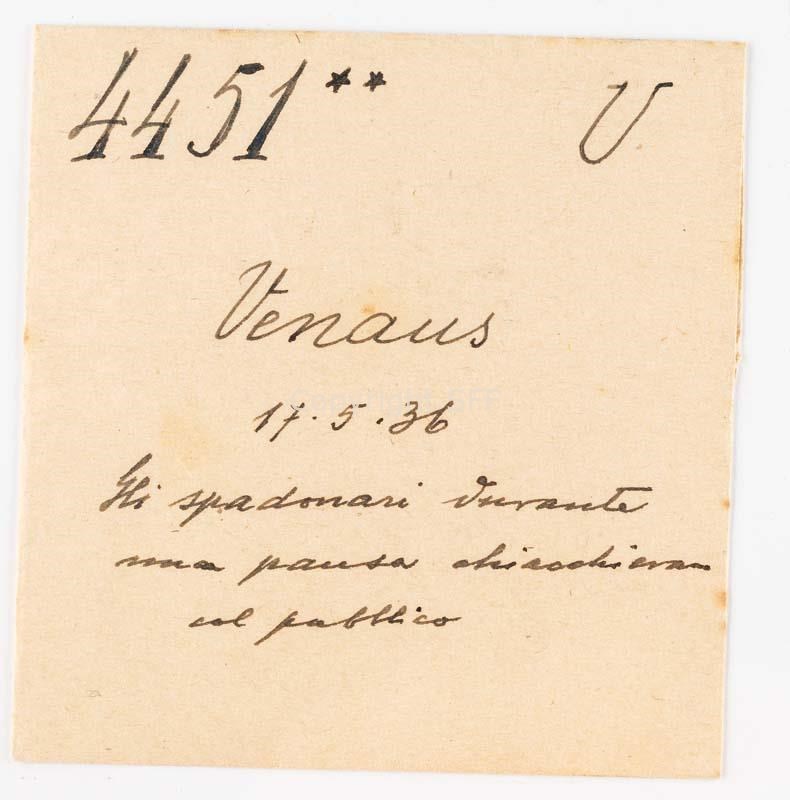 4451** V
Venaus
17.5.36
Gli spadonari durante
una pausa chiacchieran
col pubblico